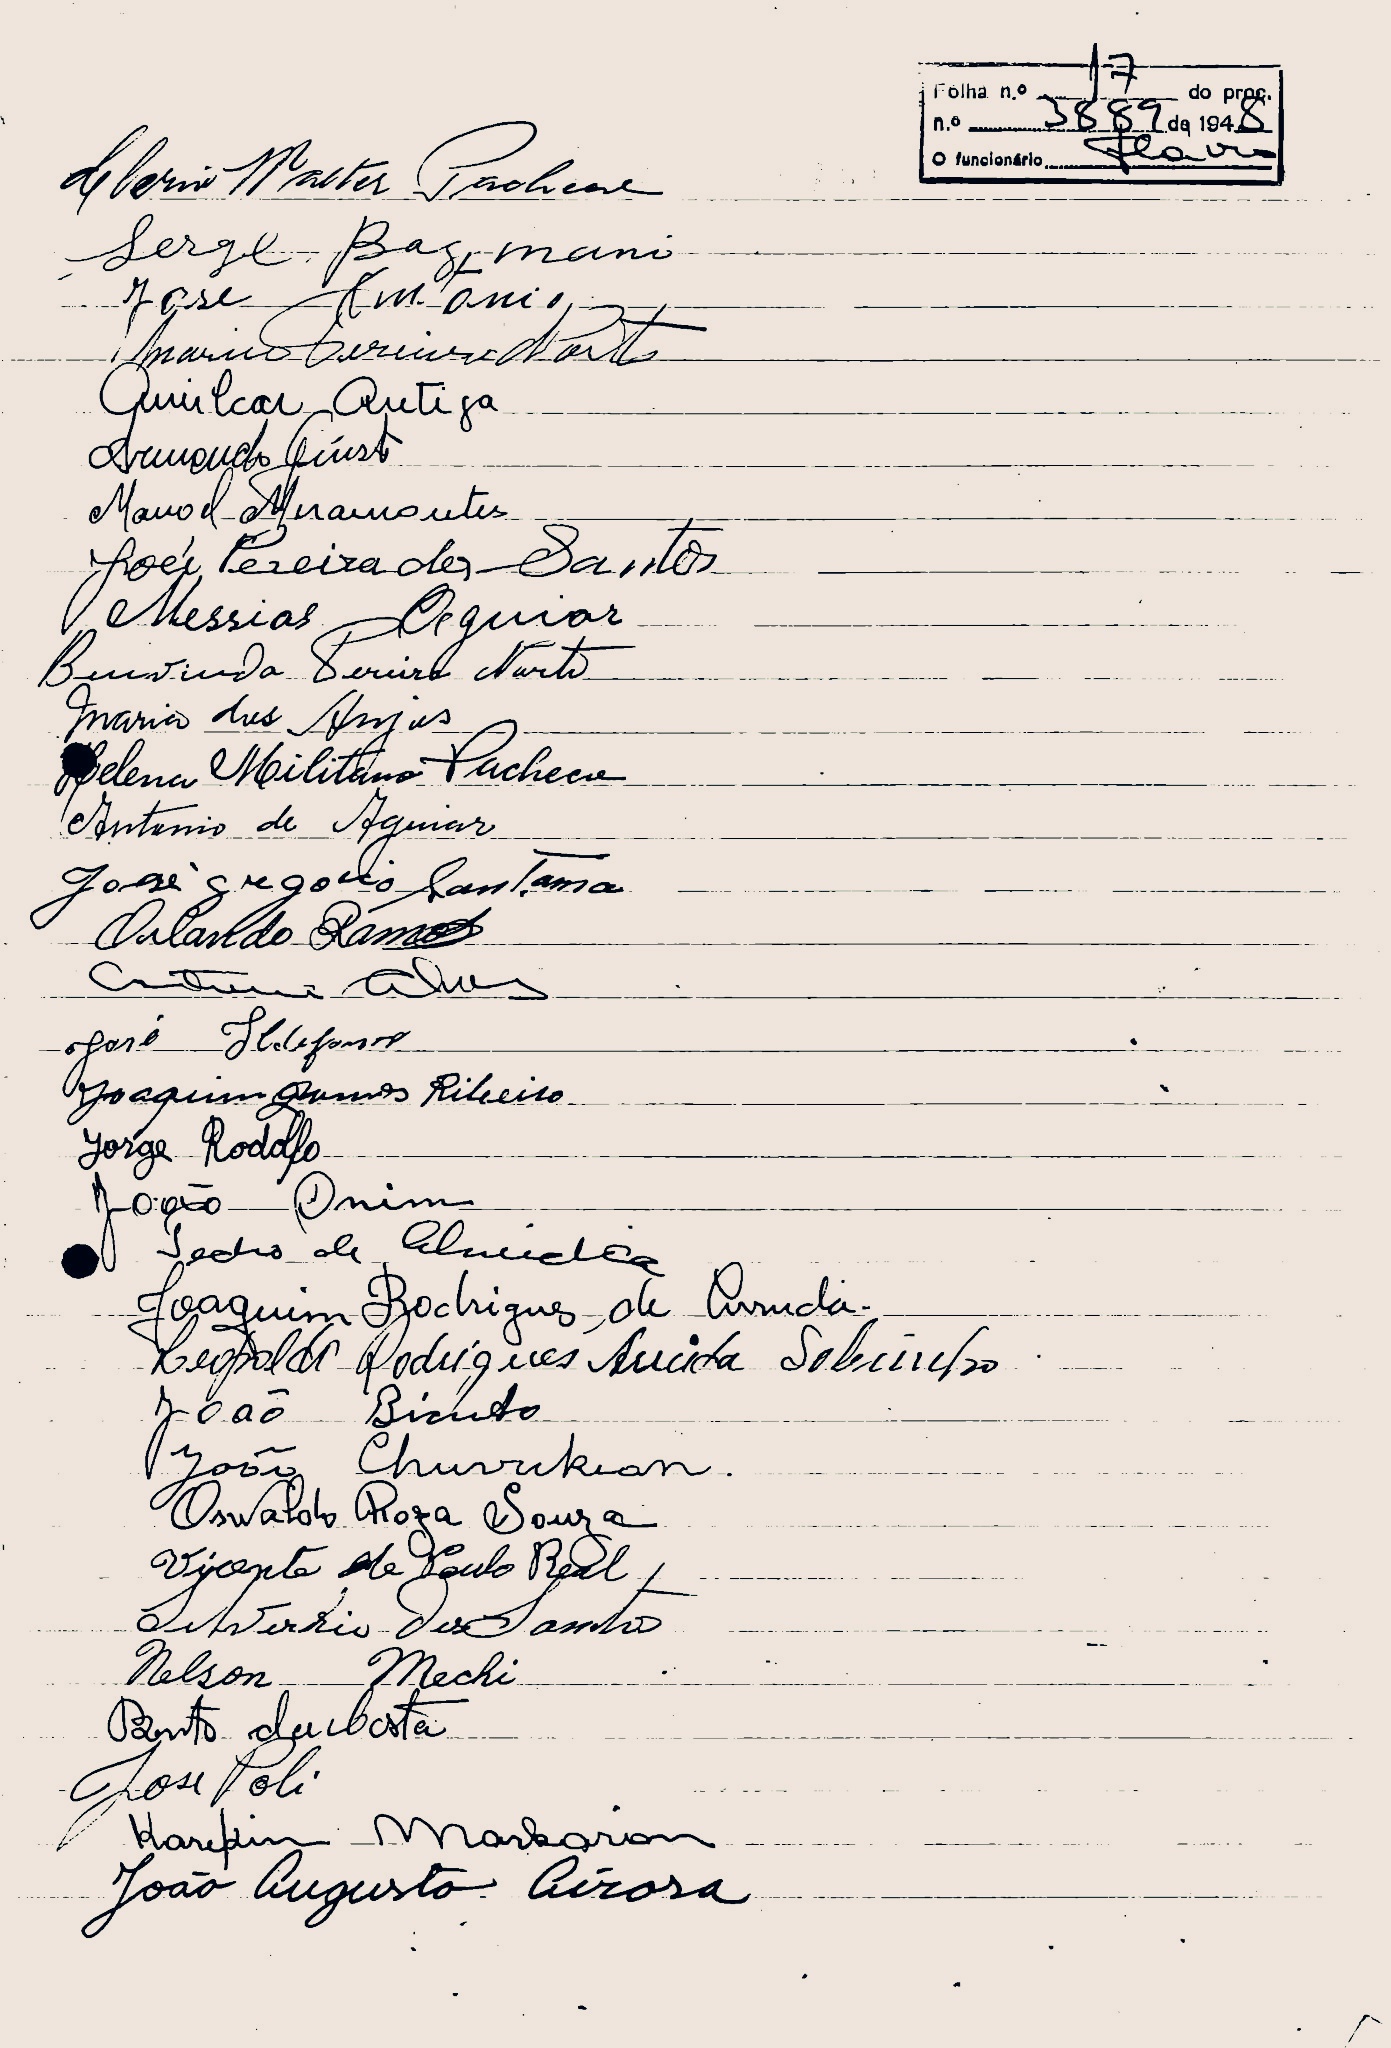 Folha n.º 17 do proc.
n.º 3889 de 1948
O funcionário Flavio
Walter Pacheco
Serge Bagmani
José Antonio
Maria Pereira
Amilcar Artiga
Armando
Manoel Miramontes
José Pereira dos Santos
Messias Aguiar
Benvinda Pereira Norte
Maria dos Anjos
Helena Militano Pacheco
Antonio de Aguiar
José gregorio Santana
Orlando Ramos
Alves
José Ildefonso
Joaquim Gomes Ribeiro
Jorge Rodolfo
João Onim
Pedro de Almeida
Joaquim Rodrigues de Arruda.
Leopoldo Rodrigues Arruda Sobrinho
João Bicudo
João Churukian.
Oswaldo Roza Souza
Vicente de Paulo Real
Silverio dos Santos
Nelson Mechi
Bento da Costa
José Poli
Karekin Markarian
João Augusto